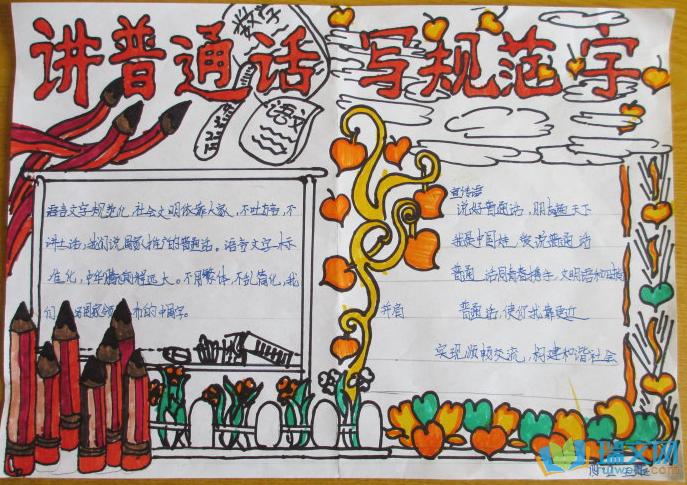 讲普通话 写规范字
数学
语文
语言文字规范化,社会文明依靠大家,不吐方言,不
讲土话,我们说国家推广的普通话。语言文字标
准化,中华腾飞前程远大。不用繁体,不乱简化,我
们 写国家颁布的中国字。
宣传语
说好普通话,朋友遍天下
我是中国娃,爱说普通话
普通话同青春携手,文明语和
普通话,使你我靠更近
实现顺畅交流,构建和谐社会
瑞文网